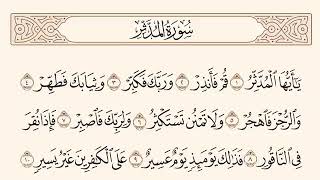 سُورَةُ المُدَّثِّرِ
يَٰٓأَيُّهَا ٱلۡمُدَّثِّرُ ١ قُمۡ فَأَنذِرۡ ٢ وَرَبَّكَ فَكَبِّرۡ ٣ وَثِيَابَكَ فَطَهِّرۡ ٤
وَٱلرُّجۡزَ فَٱهۡجُرۡ ٥ وَلَا تَمۡنُن تَسۡتَكۡثِرُ ٦ وَلِرَبِّكَ فَٱصۡبِرۡ ٧ فَإِذَا نُقِرَ
فِي ٱلنَّاقُورِ ٨ فَذَٰلِكَ يَوۡمَئِذٖ يَوۡمٌ عَسِيرٌ ٩ عَلَى ٱلۡكَٰفِرِينَ غَيۡرُ يَسِيرٖ ١٠